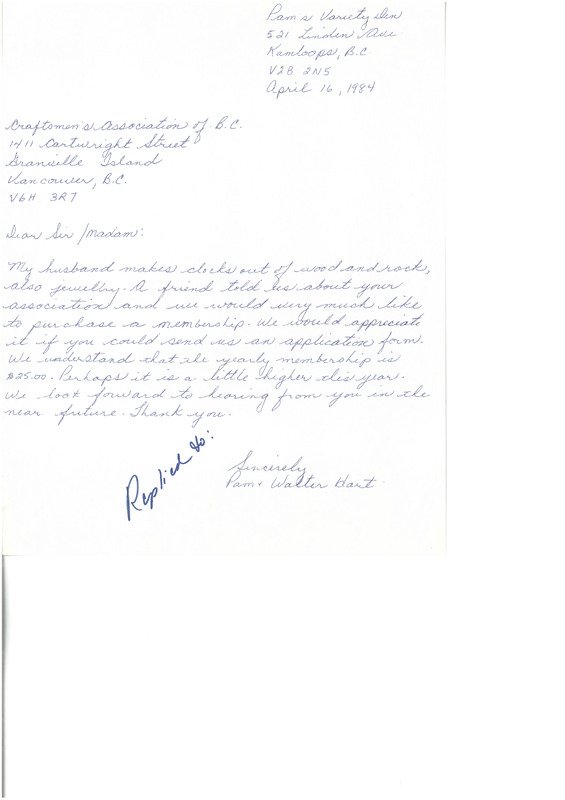 Pam's Variety Den
521 Linden Ave
Kamloops, B.C
V2B 2N5
April 16, 1984
Craftsmen's Association of B.C.
1411 Cartwright Street
Granville Island
Vancouver, B.C.
V6H 3R7
Dear Sir/Madam:
My husband makes clocks out of wood and rock,
also jewellry. A friend told us about your
association and we would very much like
to purchase a membership. We would appreciate
it if you could send us an application form.
We understand that the yearly membership is
$25.00. Perhaps it is a little higher this year.
We look forward to hearing from you in the
near future. Thank you.
Sincerely
Pam & Walter Hart
Replied to: